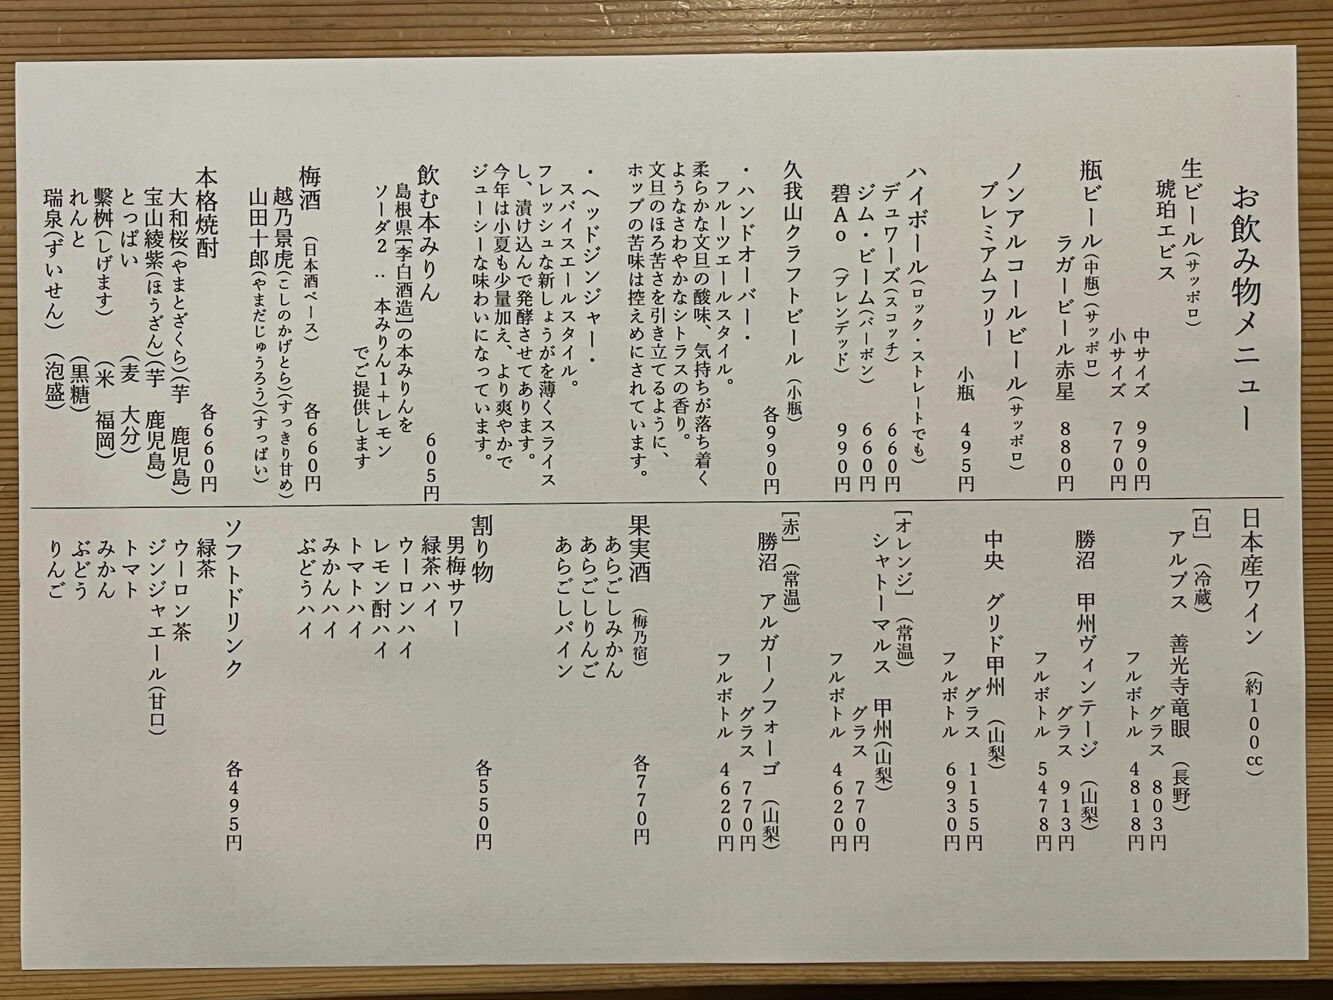 お飲み物メニュー
生ビール(サッポロ)
琥珀エビス
中サイズ 990円
小サイズ 770円
瓶ビール(中瓶)(サッポロ)
ラガービール赤星 880円
ノンアルコールビール(サッポロ)
プレミアムフリー
小瓶 495円
ハイボール(ロック・ストレートでも)
デュワーズ(スコッチ) 660円
ジム・ビーム(バーボン) 660円
碧Ao (ブレンデッド) 990円
久我山クラフトビール (小瓶)
各990円
・ハンドオーバー・
フルーツエールスタイル。
柔らかな文旦の酸味、気持ちが落ち着く
ようなさわやかなシトラスの香り。
文旦のほろ苦さを引き立てるように、
ホップの苦味は控えめにされています。
・ヘッドジンジャー・
スパイスエールスタイル。
フレッシュな新しょうがを薄くスライス
し、漬け込んで発酵させてあります。
今年は小夏も少量加え、より爽やかで
ジューシーな味わいになっています。
飲む本みりん 605円
島根県[李白酒造]の本みりんを
ソーダ2:本みりん1+レモン
でご提供します
梅酒 (日本酒ベース) 各660円
越乃景虎(こしのかげとら)(すっきり甘め)
山田十郎(やまだじゅうろう)(すっぱい)
本格焼酎 各660円
大和桜(やまとざくら)(芋 鹿児島)
宝山綾紫(ほうざん)(芋 鹿児島)
とっぱい (麦 大分)
繫桝(しげます) (米 福岡)
れんと (黒糖)
瑞泉(ずいせん) (泡盛)
日本産ワイン (約100cc)
[白] (冷蔵)
アルプス 善光寺竜眼 (長野)
グラス 803円
フルボトル 4818円
勝沼 甲州ヴィンテージ (山梨)
グラス 913円
フルボトル 5478円
中央 グリド甲州 (山梨)
グラス 1155円
フルボトル 6930円
[オレンジ] (常温)
シャトーマルス 甲州(山梨)
グラス 770円
フルボトル 4620円
[赤] (常温)
勝沼 アルガーノフォーゴ (山梨)
グラス 770円
フルボトル 4620円
果実酒 (梅乃宿) 各770円
あらごしみかん
あらごしりんご
あらごしパイン
割り物 各550円
男梅サワー
緑茶ハイ
ウーロンハイ
レモン酎ハイ
トマトハイ
みかんハイ
ぶどうハイ
ソフトドリンク 各495円
緑茶
ウーロン茶
ジンジャエール(甘口)
トマト
みかん
ぶどう
りんご